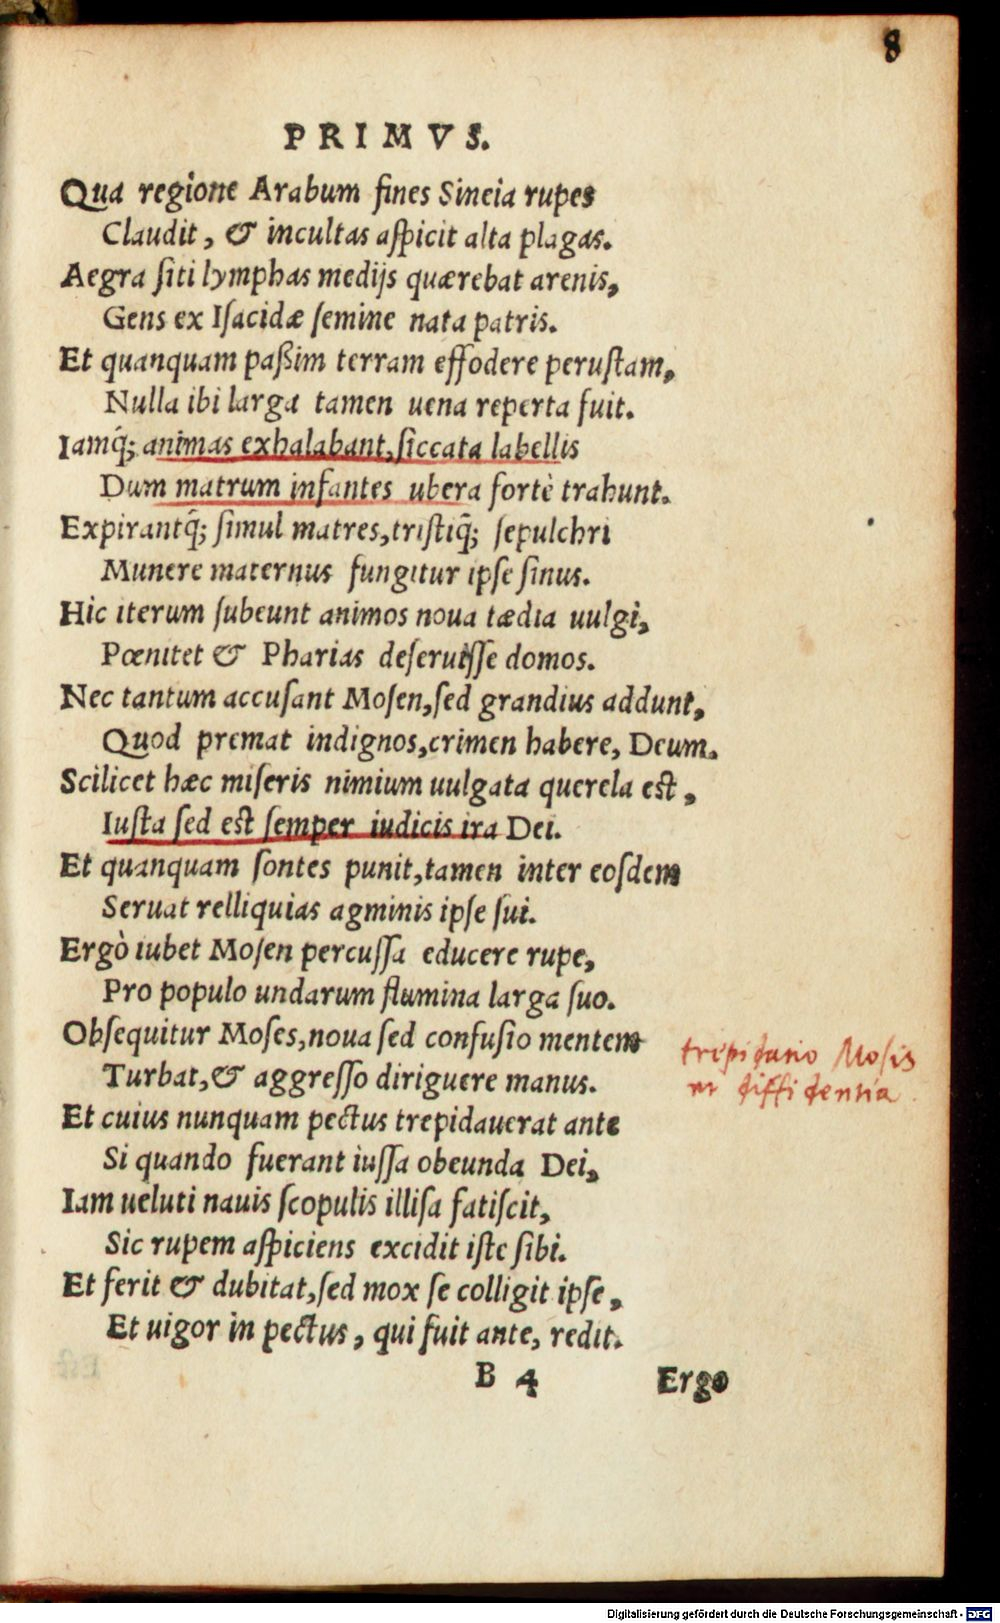 8
PRIMVS.
Qua regione Arabum fines Sineia rupes
Claudit, & incultas aſpicit alta plagas.
Aegra ſiti lymphas medijs quærebat arenis,
Gens ex Iſacidæ ſemine nata patris.
Et quanquam paßim terram effodere peruſtam,
Nulla ibi larga tamen uena reperta fuit.
Iamq́; animas exhalabant, ſiccata labellis
Dum matrum infantes ubera fortè trahunt.
Expirantq́; ſimul matres, triſtiq́; ſepulchri
Munere maternus fungitur ipſe ſinus.
Hic iterum ſubeunt animos noua tædia uulgi,
Pœnitet & Pharias deſeruiſſe domos.
Nec tantum accuſant Moſen, ſed grandius addunt,
Quod premat indignos, crimen habere, Deum.
Scilicet hæc miſeris nimium uulgata querela est,
Iuſta ſed est ſemper iudicis ira Dei.
Et quanquam ſontes punit, tamen inter eoſdem
Seruat relliquias agminis ipſe ſui.
Ergò iubet Moſen percuſſa educere rupe,
Pro populo undarum flumina larga ſuo.
Obſequitur Moſes, noua ſed confuſio mentem
Turbat, & aggreſſo diriguere manus.
trepidatio Moſis
et diffidentia.
Et cuius nunquam pectus trepidauerat ante
Si quando fuerant iuſſa obeunda Dei,
Iam ueluti nauis ſcopulis illiſa fatiſcit,
Sic rupem aſpiciens excidit iſte ſibi.
Et ferit & dubitat, ſed mox ſe colligit ipſe,
Et uigor in pectus, qui fuit ante, redit.
B 4 Ergo
Digitalisierung gefördert durch die Deutsche Forschungsgemeinschaft - DFG